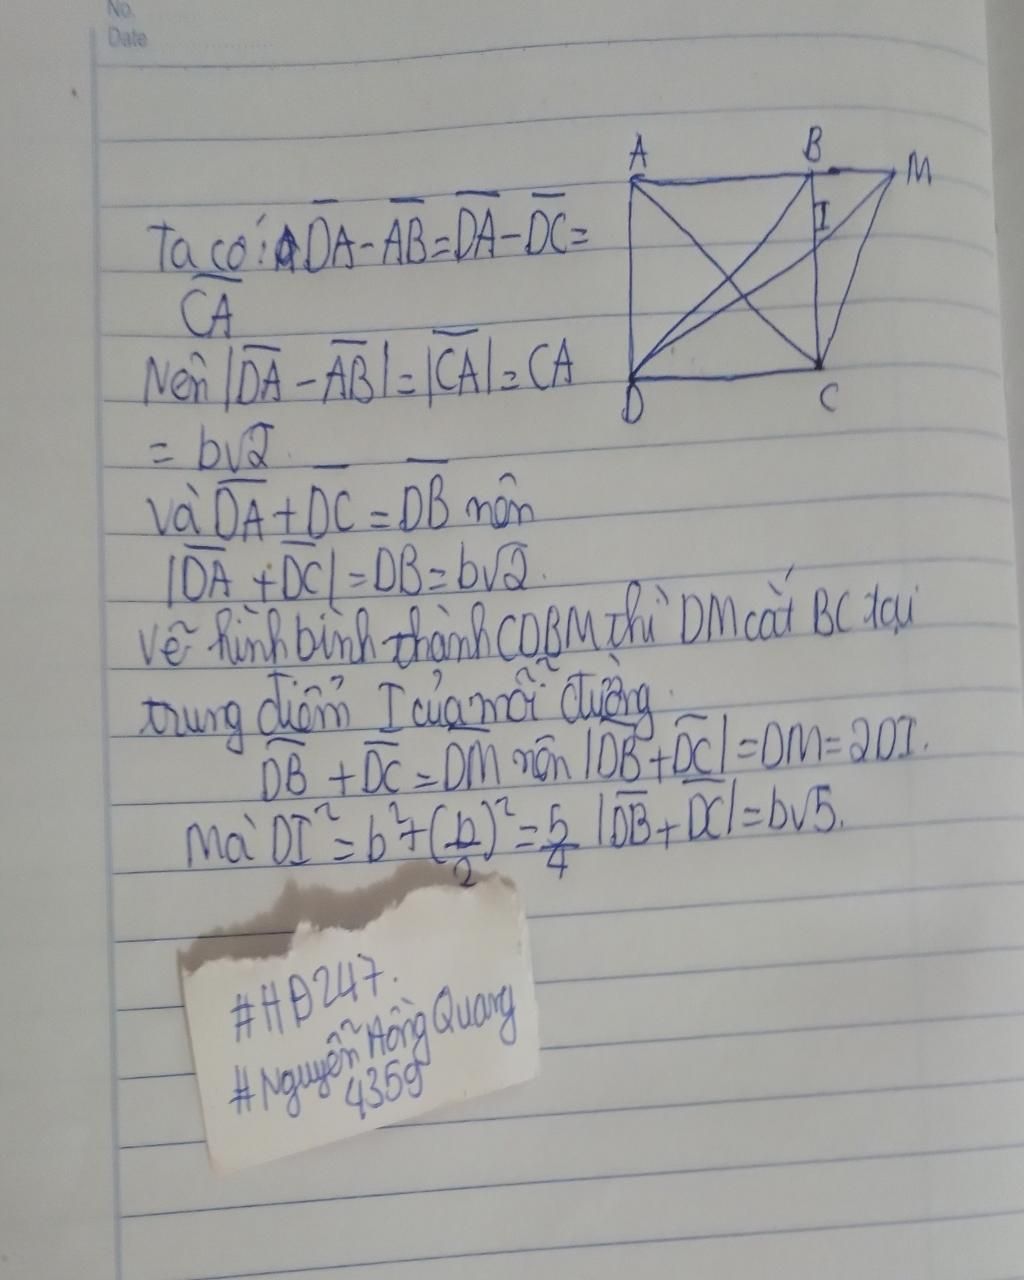 No.
Date
A
B
M
I
D
C
Ta có: DA - AB = DA - DC =
CA
Nên |DA - AB| = |CA| = CA
= b√2.
và DA + DC = DB nên
|DA + DC| = DB = b√2.
Vẽ hình bình thành CDBM thì DM cắt BC tại
trung điểm I của mỗi đường.
DB + DC = DM nên |DB + DC| = DM = 2DI.
Mà DI² = b² + (b/2)² = 5/4 |DB + DC| = b√5.
#HD247.
#Nguyễn Hồng Quang
4359